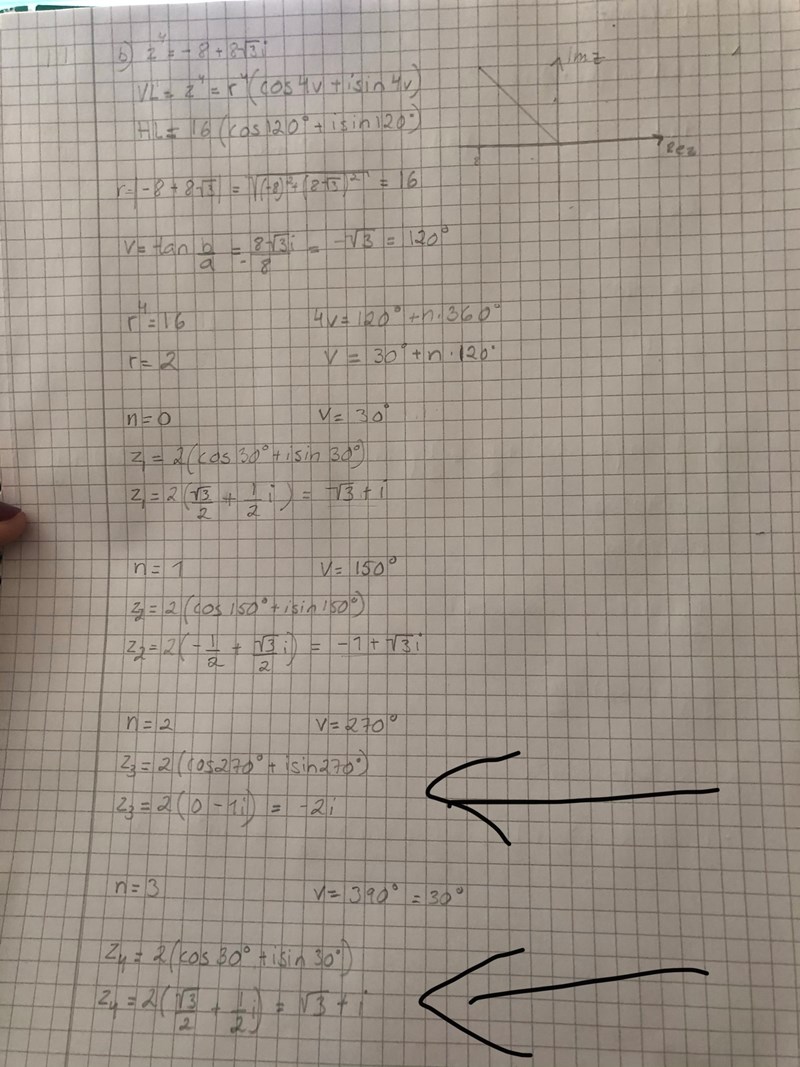 b) z⁴ = -8 + 8√3i
VL = z⁴ = r⁴(cos 4v + isin 4v)
HL = 16 (cos 120° + isin 120°)
imz
Rez
r = |-8 + 8√3| = √(-8)² + (8√3)² = 16
v = tan b/a = 8√3i/-8 = -√3 = 120°
r⁴ = 16
4v = 120° + n·360°
r = 2
v = 30° + n·120°
n = 0
v = 30°
z₁ = 2(cos 30° + isin 30°)
z₁ = 2(√3/2 + 1/2 i) = √3 + i
n = 1
v = 150°
z₂ = 2(cos 150° + isin 150°)
z₂ = 2(-1/2 + √3/2 i) = -1 + √3i
n = 2
v = 270°
z₃ = 2(cos 270° + isin 270°)
z₃ = 2(0 - 1i) = -2i
n = 3
v = 390° = 30°
z₄ = 2(cos 30° + isin 30°)
z₄ = 2(√3/2 + 1/2 i) = √3 + i